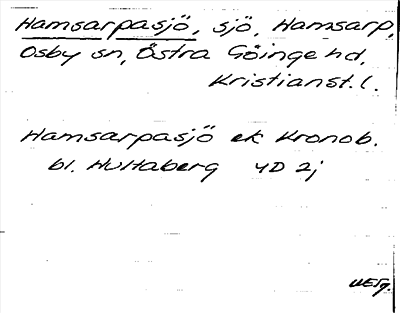 Hamsarpasjö, sjö, Hamsarp,
Osby sn, Östra Göinge hd,
Kristianst. l.
Hamsarpasjö ek Kronob.
bl. Hultaberg 4D 2j